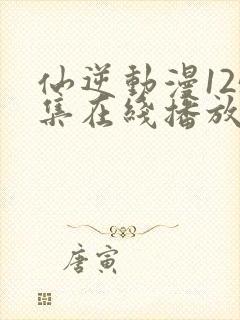 仙逆動漫12
集在綫播放
唐寅